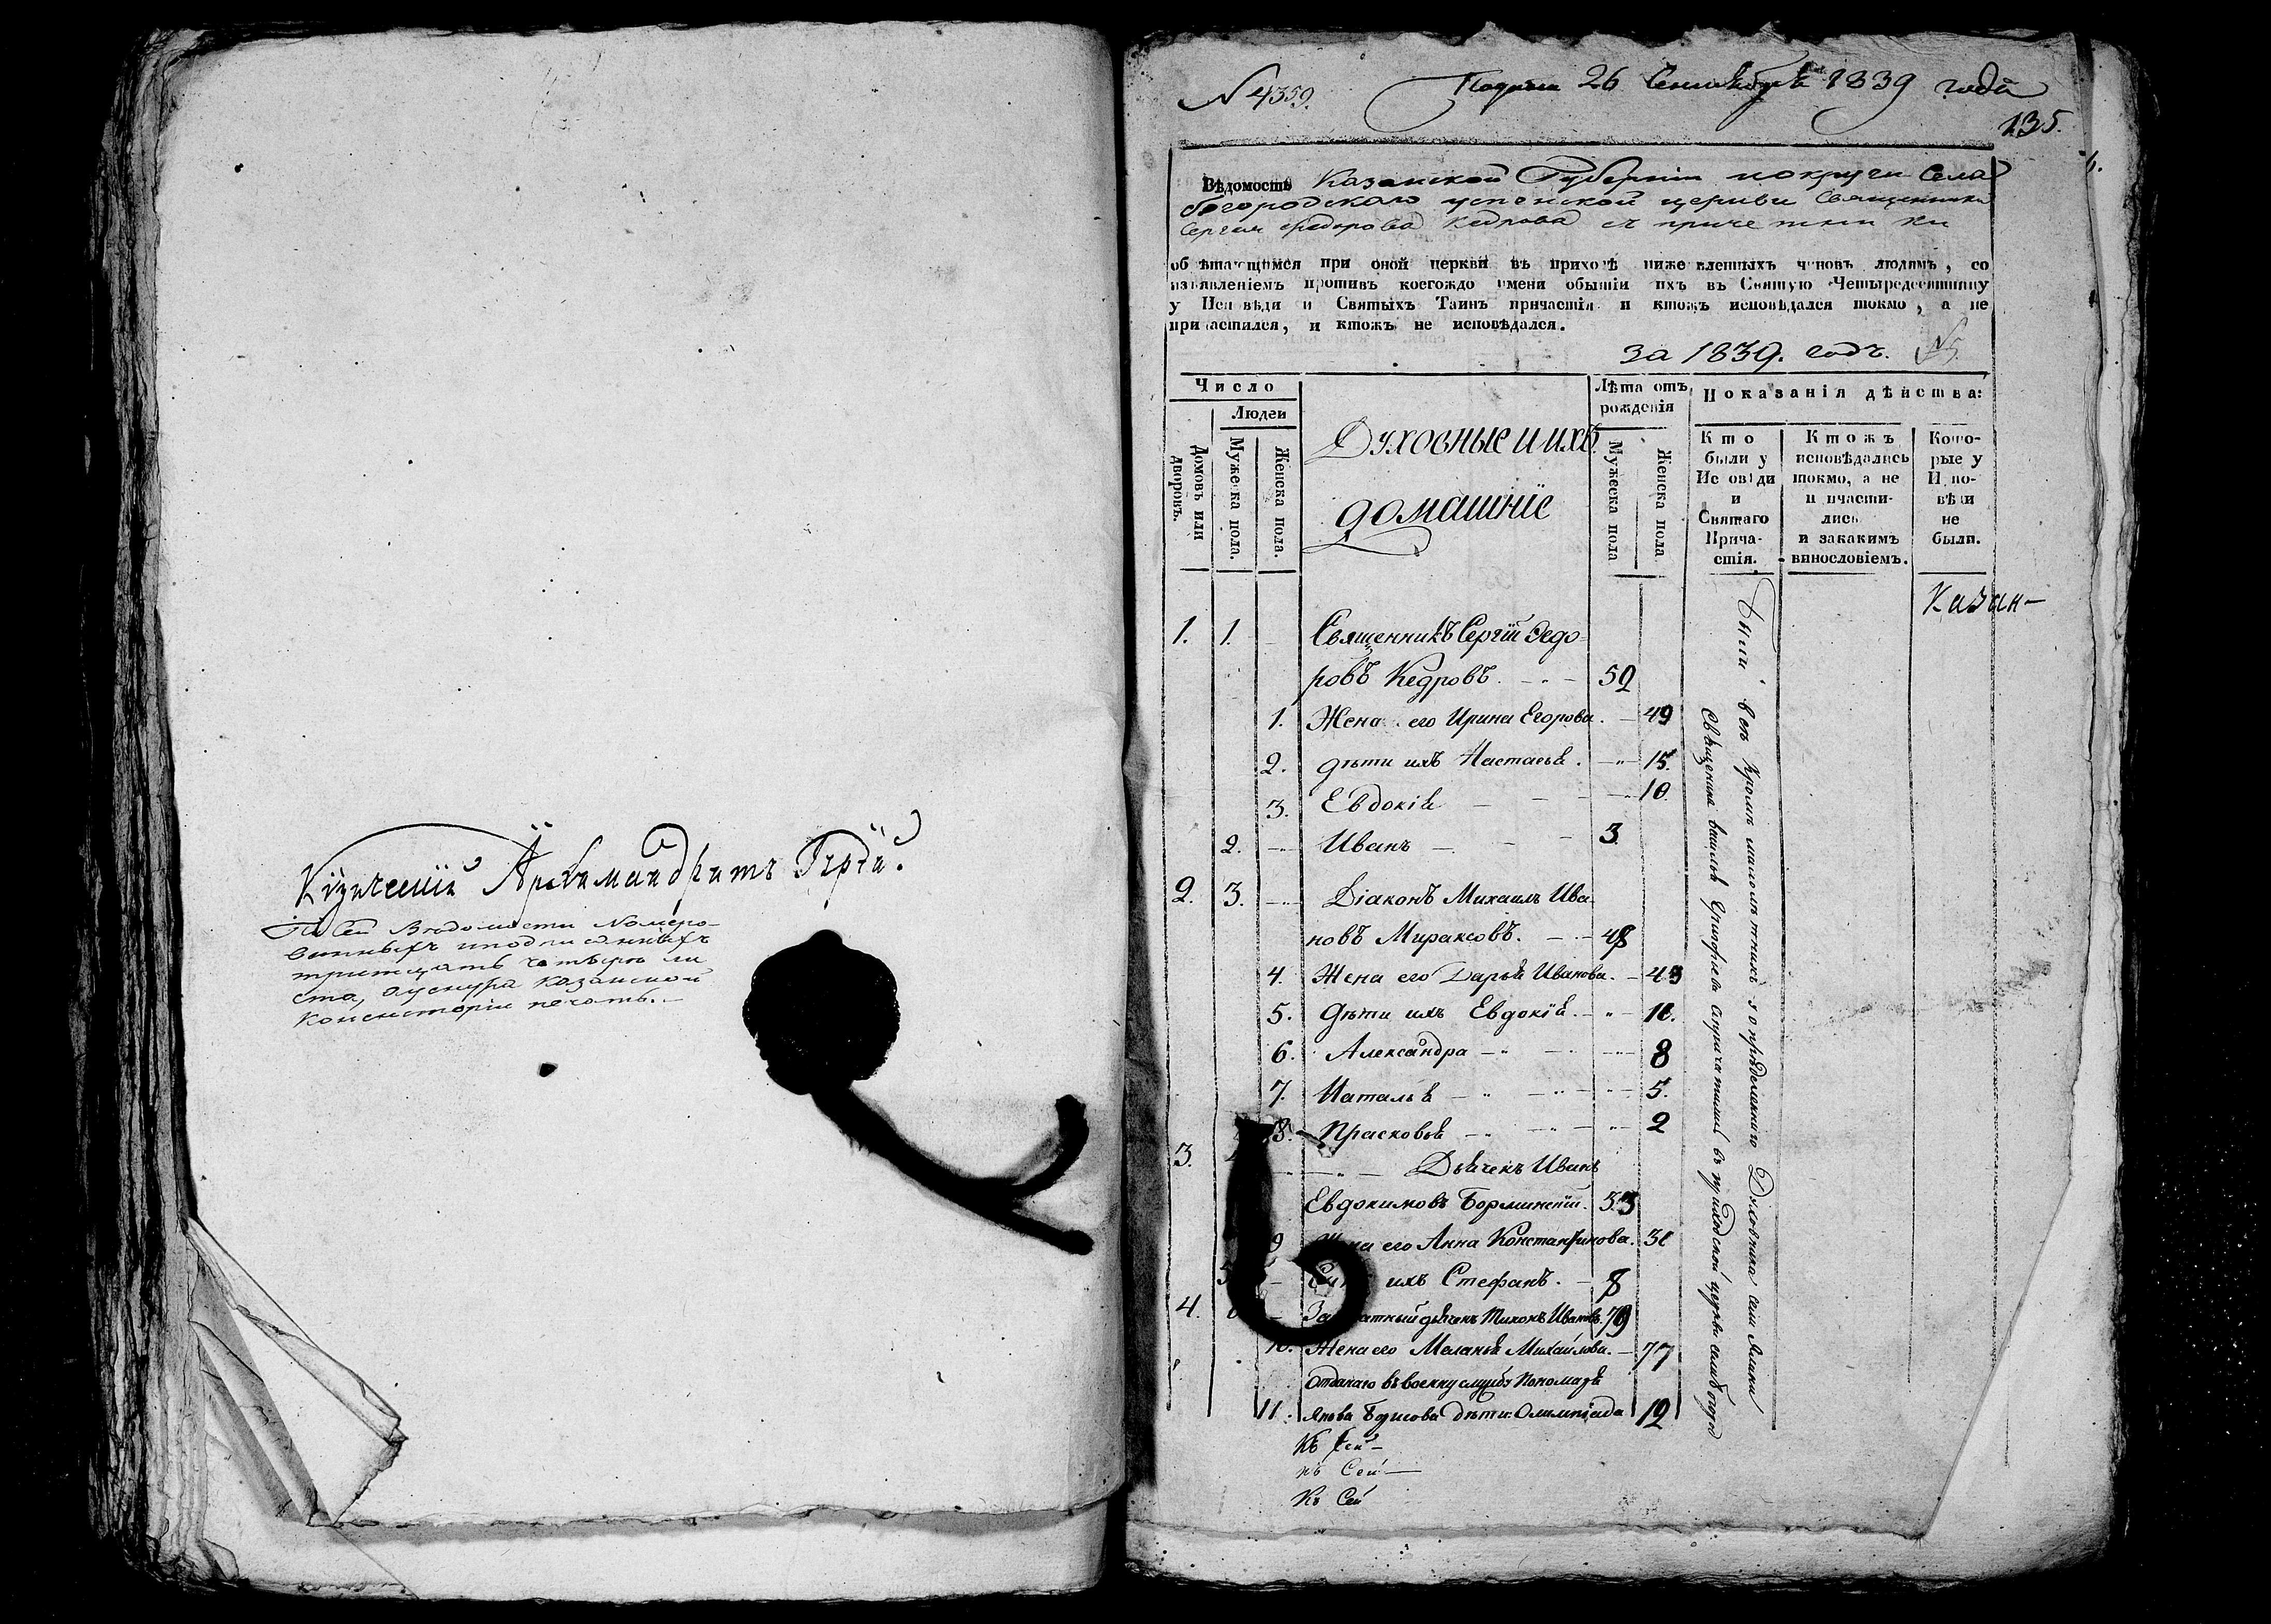 Архимандритъ
По сей Вѣдомости Номеро-
ванныхъ
тритцать четыре ли
ста, Казанской
Консисторіи печать.
N 4359. 26 Сентября 1839 года
135.
Вѣдомость Казанской Губерніи и округи Села
богородскаго успенской церкви Священника
Сергія Федорова Кедрова съ причетники
обрѣтающимся при оной церкви въ приходѣ нижеявленныхъ чиновъ людямъ, со
изъявленіемъ противъ коегождо имени обытіи ихъ въ Святую Четыредесятницу
у Исповѣди и Святыхъ Таинъ причастія и ктожъ исповѣдался токмо, а не
причастился, и ктожъ не исповѣдался.
за 1839. годъ. N 5.
Число
Людей
Домовъ или дворовъ.
Мужеска пола.
Женска пола.
Духовные и ихъ
домашніе
Лѣта отъ
рожденія
Мужеска пола
Женска пола
Показанія дѣйства:
Кто
были у
Исповѣди
и
Святаго
Прича-
стія.
Ктожъ
исповѣдались
токмо, а не
причасти-
лись
и закакимъ
винословіемъ.
Кото-
рые у
Испо-
вѣди
не
были.
Казан-
1. 1. Священникъ Сергій Ѳедо-
ровъ Кедровъ. 52
1. Жена его Ирина Егорова. 49
2. дѣти ихъ Настасья. 15.
3. Евдокія 10.
2. Иванъ 3
2. 3. Діаконъ Михаилъ Ива-
новъ Мираксовъ. 48
4. Жена его Дарья Иванова. 43
5. Дѣти ихъ Евдокія.
6. Александра 8
7. Наталья 5.
8. Прасковья 2
3. Дьячекъ Иванъ
Евдокимовъ 53
9 его Анна Константинова.
5 ихъ Стефанъ. 8
4. дьячекъ Тихонъ Ивановъ. 79
10. Жена его Меланья Михайлова. 77
Отданаго въ военну службу Пономаря
11. Якова Борисова дѣти: Олимпіада 12
Къ Сей
къ Сей
Къ Сей
Были всѣ кромѣ малолѣтнихъ у опредѣленнаго Духовника села
Священника Григорьева въ приходской церкви села